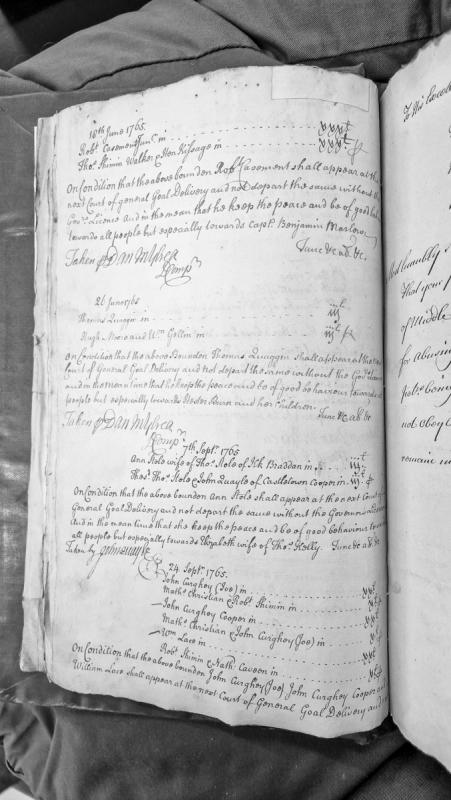 18th June 1765.
Robt. Casement Junr. in ... xxx£
Thos. Skimin Walker & Hen: Kissage in ... xxx£
On Condition that the above bounden Robt. Casement shall appear at the
next Court of general Goal Delivery and not depart the same without the
Govrs. Licence And in the mean that he keep the peace and be of good
towards all people but especially towards Captn. Benjamin
June &c ad. &c.
Taken Dan Mylrea
26 June 1765
Thomas Quaggin in
Hugh Moore and Wm. in
On Condition that the above Bounden Thomas Quaggin shall appear at the next
Court of General Goal Delivery and not depart the same without the Govrs.
and in the mean time that he keep the peace and be of good behaviour towards
people but especially towards and her Children.
June &c ad. &c
Taken Dan Mylrea
7th. Septr. 1765
Ann Stole wife of Thos. Stole of Kk Braddan in
Thos. Stole & John Quayle of Castletown Cooper in
On Condition that the above bounden Ann Stole shall appear at the next Court of
General Goal Delivery and not depart the same without the Governors
And in the mean time that she keep the peace and be of good behaviour
all people but especially towards Elizabeth wife of Thos. Kelly. June &c ad. &c.
Taken by John Quayle
24 Septr. 1765.
John Curghey (Joe) in
Mathw. Christian & Robt. Skimin in
John Curghey Cooper in
Mathw. Christian & John Curghey (Joe) in
Wm. Lace in
Robt. Skimin & Nath: Caveen in
On Condition that the above bounden John Curghey (Joe) John Curghey Cooper and
William Lace shall appear at the next Court of General Goal Delivery and
To His
Most humbly
That your
of Middle
for abusing
not obey
remain in